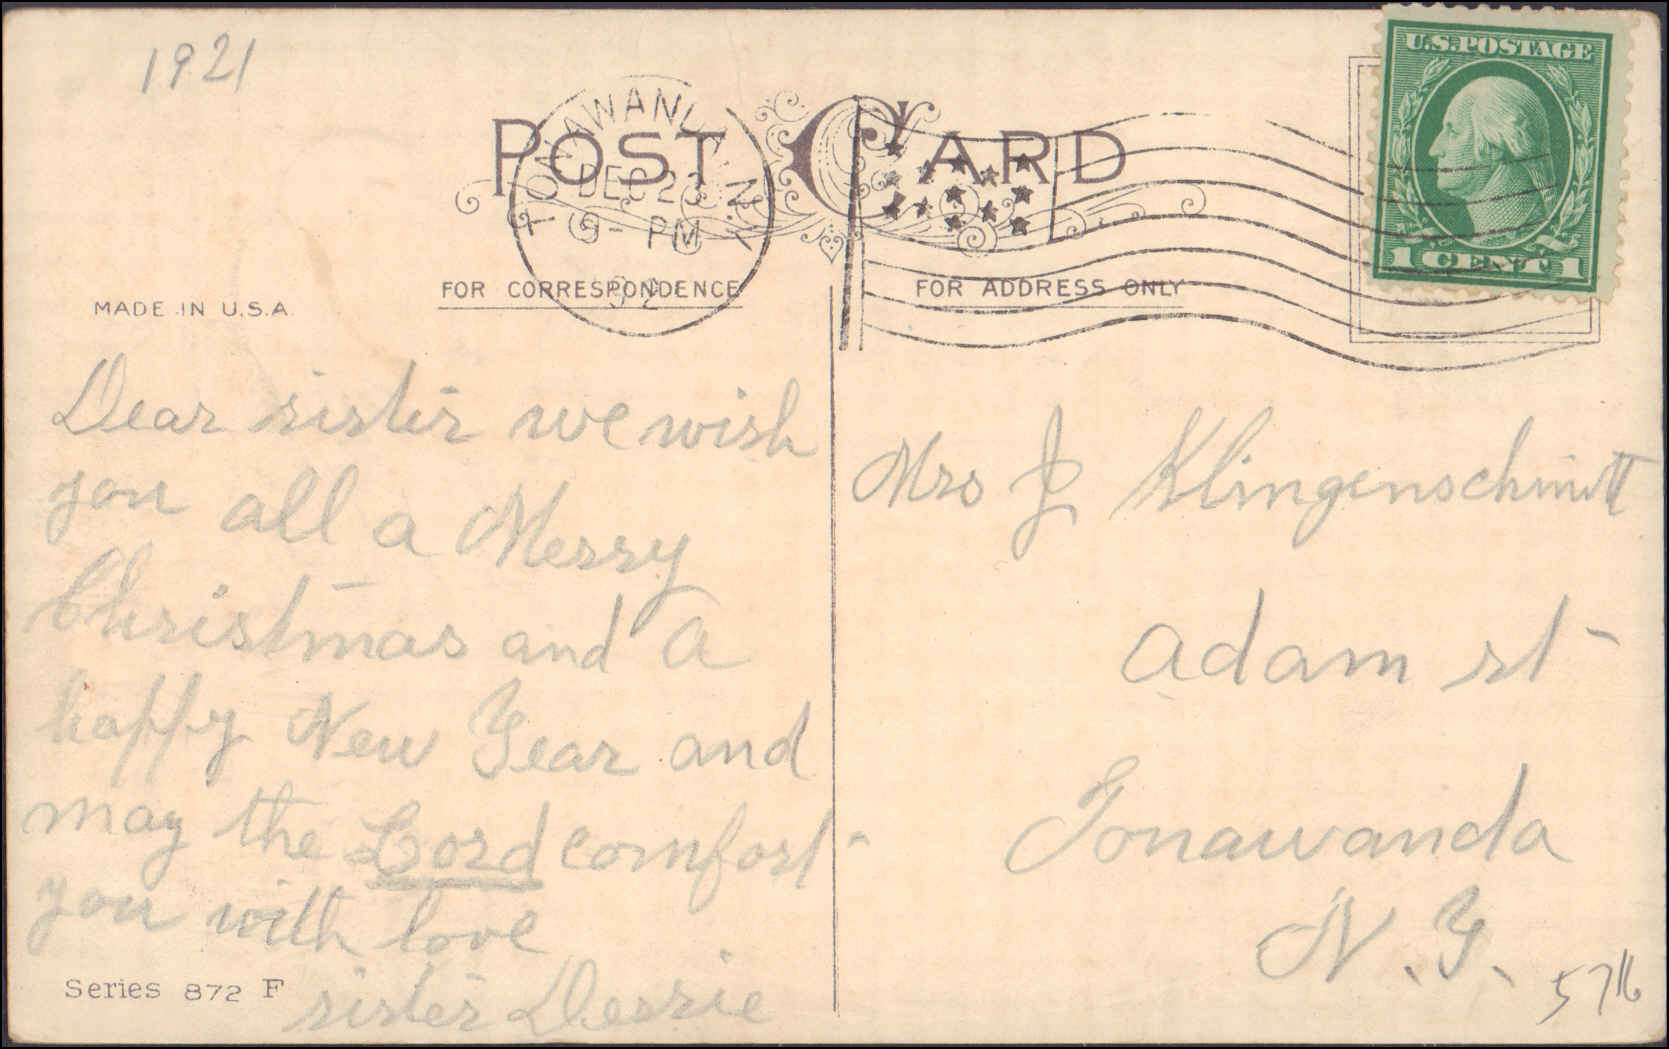 1921
U.S. POSTAGE
1 CENT 1
POST CARD
TONAWANDA N.Y.
DEC 23
9- PM
FOR CORRESPONDENCE
FOR ADDRESS ONLY
MADE IN U.S.A.
Dear sister we wish
you all a Merry
Christmas and a
happy New Year and
may the Lord comfort-
you with love
sister Dessie
Series 872 F
Mrs J Klingenschmitt
Adam st-
Tonawanda
N.Y.